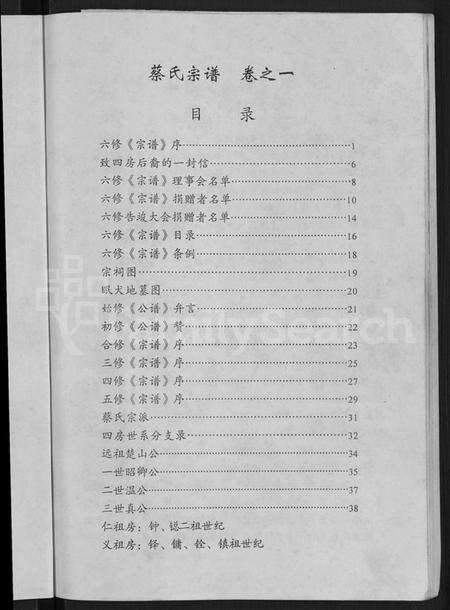 蔡氏宗谱 卷之一
目 录
六修《宗谱》序 1
致四房后裔的一封信 6
六修《宗谱》理事会名单 8
六修《宗谱》捐赠者名单 10
六修告竣大会捐赠者名单 14
六修《宗谱》目录 16
六修《宗谱》条例 18
宗祠图 19
眠犬地墓图 20
始修《公谱》弁言 21
初修《公谱》赞 22
合修《宗谱》序 23
三修《宗谱》序 25
四修《宗谱》序 27
五修《宗谱》序 29
蔡氏宗派 31
四房世系分支录 32
远祖楚山公 34
一世昭卿公 35
二世温公 37
三世真公 38
仁祖房：钟、 二祖世纪
义祖房：铎、镛、铨、镇祖世纪
FamilySearch